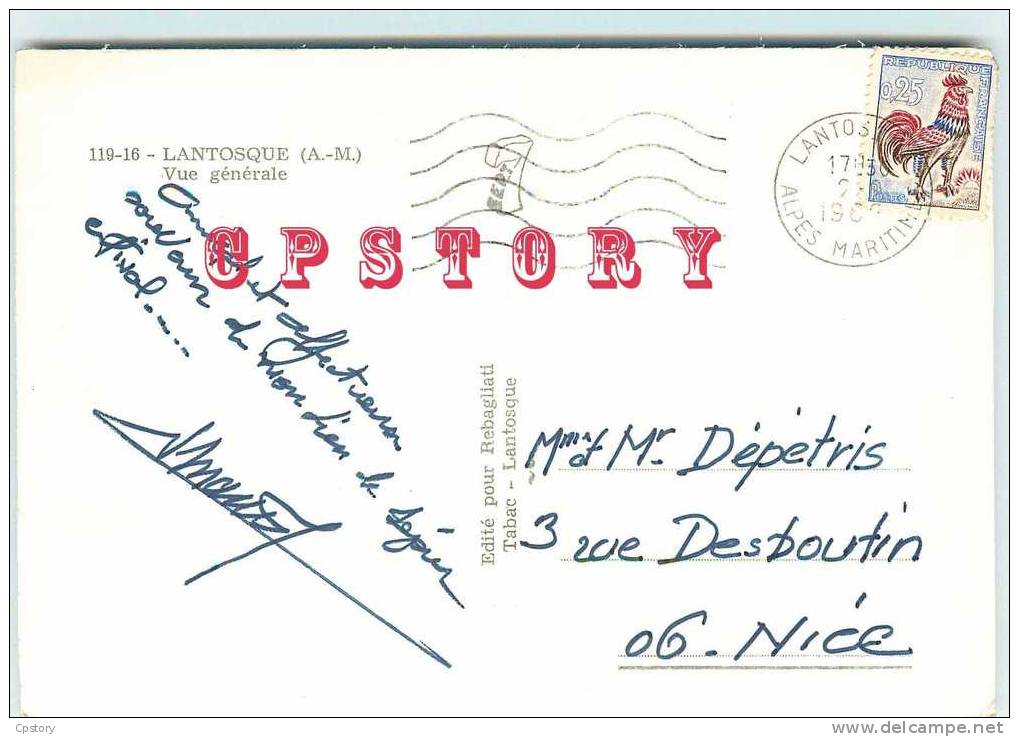 119-16 - LANTOSQUE (A.-M.)
Vue générale
REPUBLIQUE FRANÇAISE
0,25
POSTES
LANTOS
17H30
2
196
ALPES MARITIM
CPSTORY
Amical et affectueux
souvenir de mon lieu de séjour
estival.....
Edité pour Rebagliati
Tabac - Lantosque
Mme et Mr Dépétris
3 rue Desboutin
06. Nice
Cpstory
delcampe.net